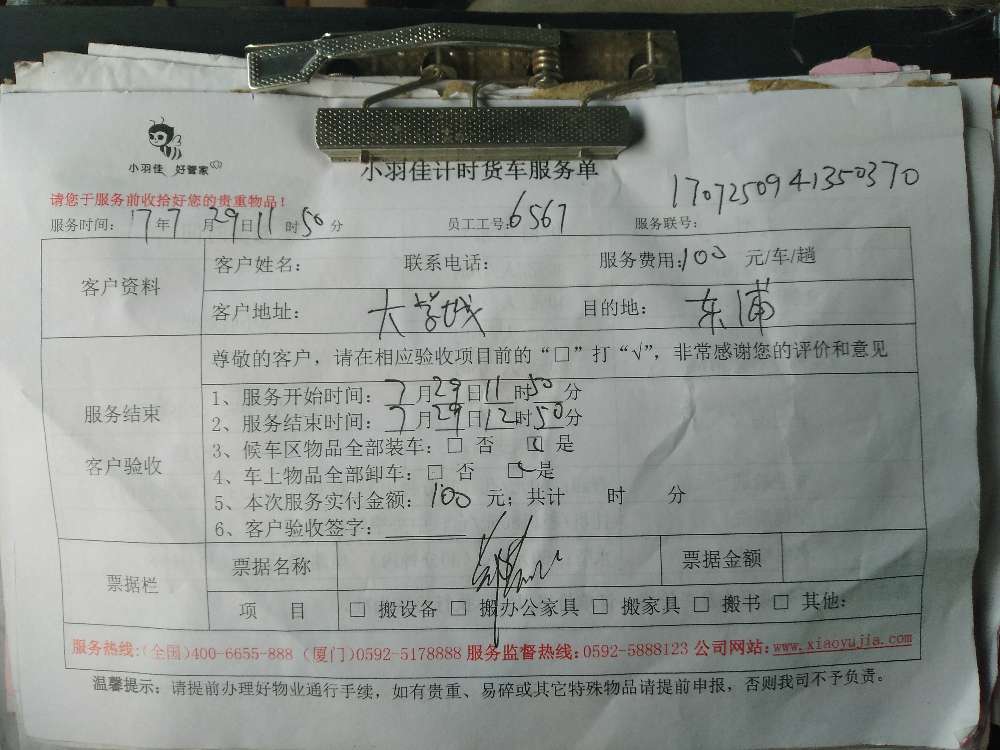 小羽佳 好管家
小羽佳计时货车服务单
请您于服务前收拾好您的贵重物品!
1707250941350370
服务时间: 17年7月29日11时50分 员工工号: 6567 服务联号:
客户资料
客户姓名: 联系电话: 服务费用: 100 元/车/趟
客户地址: 大学城 目的地: 东浦
服务结束
客户验收
尊敬的客户，请在相应验收项目前的“□”打“√”，非常感谢您的评价和意见
1、服务开始时间: 7月29日11时50分
2、服务结束时间: 7月29日12时50分
3、候车区物品全部装车: □ 否 ☑ 是
4、车上物品全部卸车: □ 否 ☑ 是
5、本次服务实付金额: 100 元; 共计 时 分
6、客户验收签字:
票据栏
票据名称 票据金额
项 目 □ 搬设备 □ 搬办公家具 □ 搬家具 □ 搬书 □ 其他:
服务热线:(全国)400-6655-888 (厦门)0592-5178888 服务监督热线:0592-5888123 公司网站:www.xiaoyujia.com
温馨提示: 请提前办理好物业通行手续, 如有贵重、易碎或其它特殊物品请提前申报, 否则我司不予负责。